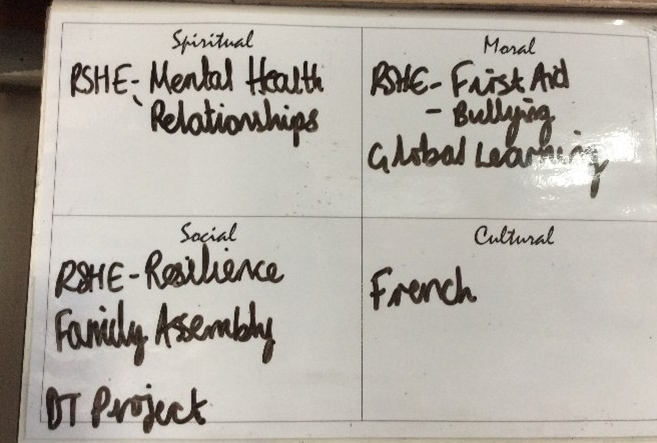 Spiritual
RSHE - Mental Health
Relationships
Moral
RSHE - First Aid
- Bullying
Global Learning
Social
RSHE - Resilience
Family Assembly
DT Project
Cultural
French